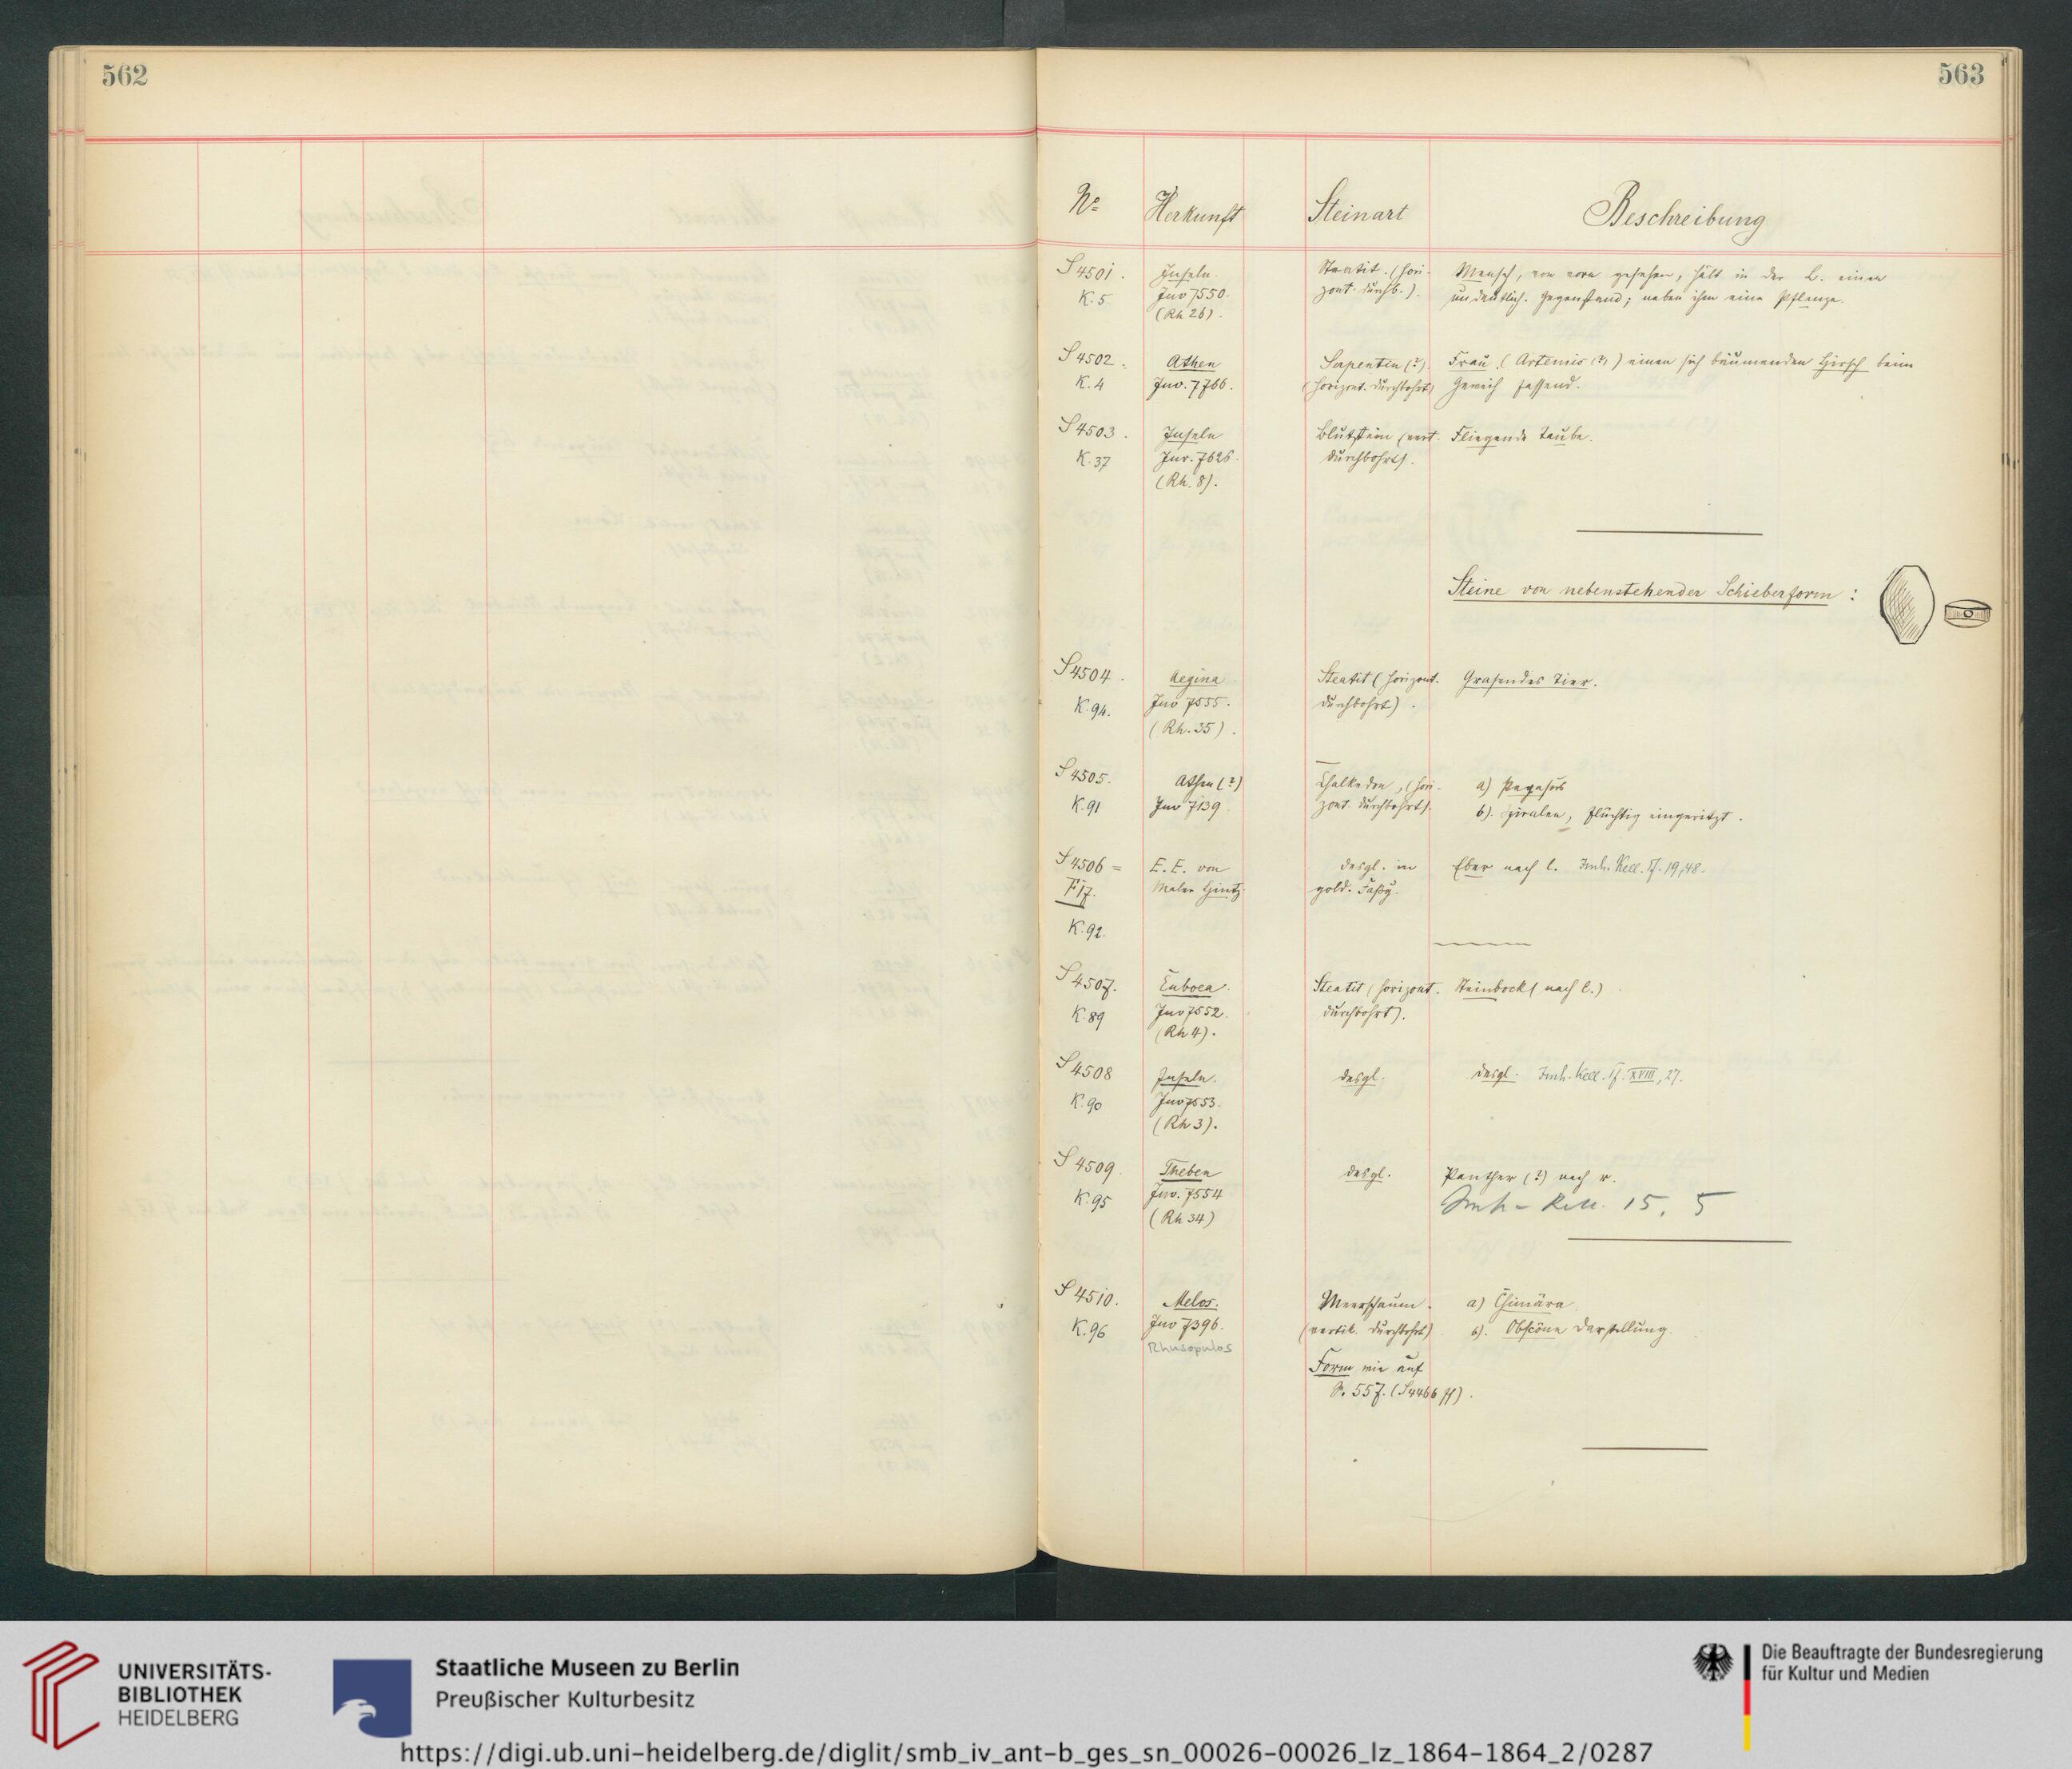 562
563
No Herkunft Steinart Beschreibung
S 4501. Inseln. Steatit. (hori- Mensch, von vorn gesehen, hält in der L. einen
K. 5 Inv 7550. zont. durchb.). undeutlich. Gegenstand; neben ihm eine Pflanze.
(Rh 26).
S 4502. Athen Serpentin (?). Frau (Artemis (?)) einen sich bäumenden Hirsch beim
K. 4 Inv. 7766. (horizont. durchbohrt) Geweih fassend.
S 4503. Inseln Blutstein (vert. Fliegende Taube.
K. 37 Inv. 7626. durchbohrt).
(Rh. 8).
Steine von nebenstehender Schieberform:
S 4504. Aegina Steatit (horizont. Grasendes Tier.
K. 94. Inv 7555. durchbohrt).
(Rh. 35).
S 4505. Athen (?) Chalkedon, (hori- a) Pegasos
K. 91 Inv 7139. zont. durchbohrt). b). Spiralen, flüchtig eingeritzt.
S 4506 = E. E. von desgl. in Eber nach l. Imh. Kell. Tf. 19,48.
F 17. Maler Hintz gold. Fassg.
K. 92.
S 4507. Euboea. Steatit (horizont. Steinbock (nach l.)
K. 89 Inv 7552. durchbohrt).
(Rh 4).
S 4508 Inseln. desgl. desgl. Imh. Kell. Tf. XVIII, 27.
K. 90 Inv 7553.
(Rh 3).
S 4509. Theben desgl. Panther (?) nach r.
K. 95 Inv. 7554 Imh - Kell. 15, 5
(Rh 34)
S 4510. Melos. Meerschaum. a) Chimära
K. 96 Inv 7396. (vertik. durchbohrt) b). Obscöne Darstellung.
Rhusopulos
Form wie auf
S. 557. (S 4466 ff).
UNIVERSITÄTS-
BIBLIOTHEK
HEIDELBERG
Staatliche Museen zu Berlin
Preußischer Kulturbesitz
Die Beauftragte der Bundesregierung
für Kultur und Medien
https://digi.ub.uni-heidelberg.de/diglit/smb_iv_ant-b_ges_sn_00026-00026_lz_1864-1864_2/0287